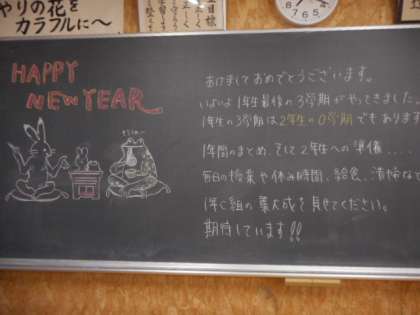 やりの花を
カラフルに〜
HAPPY
NEW YEAR
あけましておめでとうございます。
いよいよ1年生最後の3学期がやってきました
1年生の3学期は2年生の0学期でもあります
1年間のまとめ、そして2年生への準備....
毎日の授業や休み時間、給食、清掃など
1年く組の集大成を見せてください。
期待しています!!